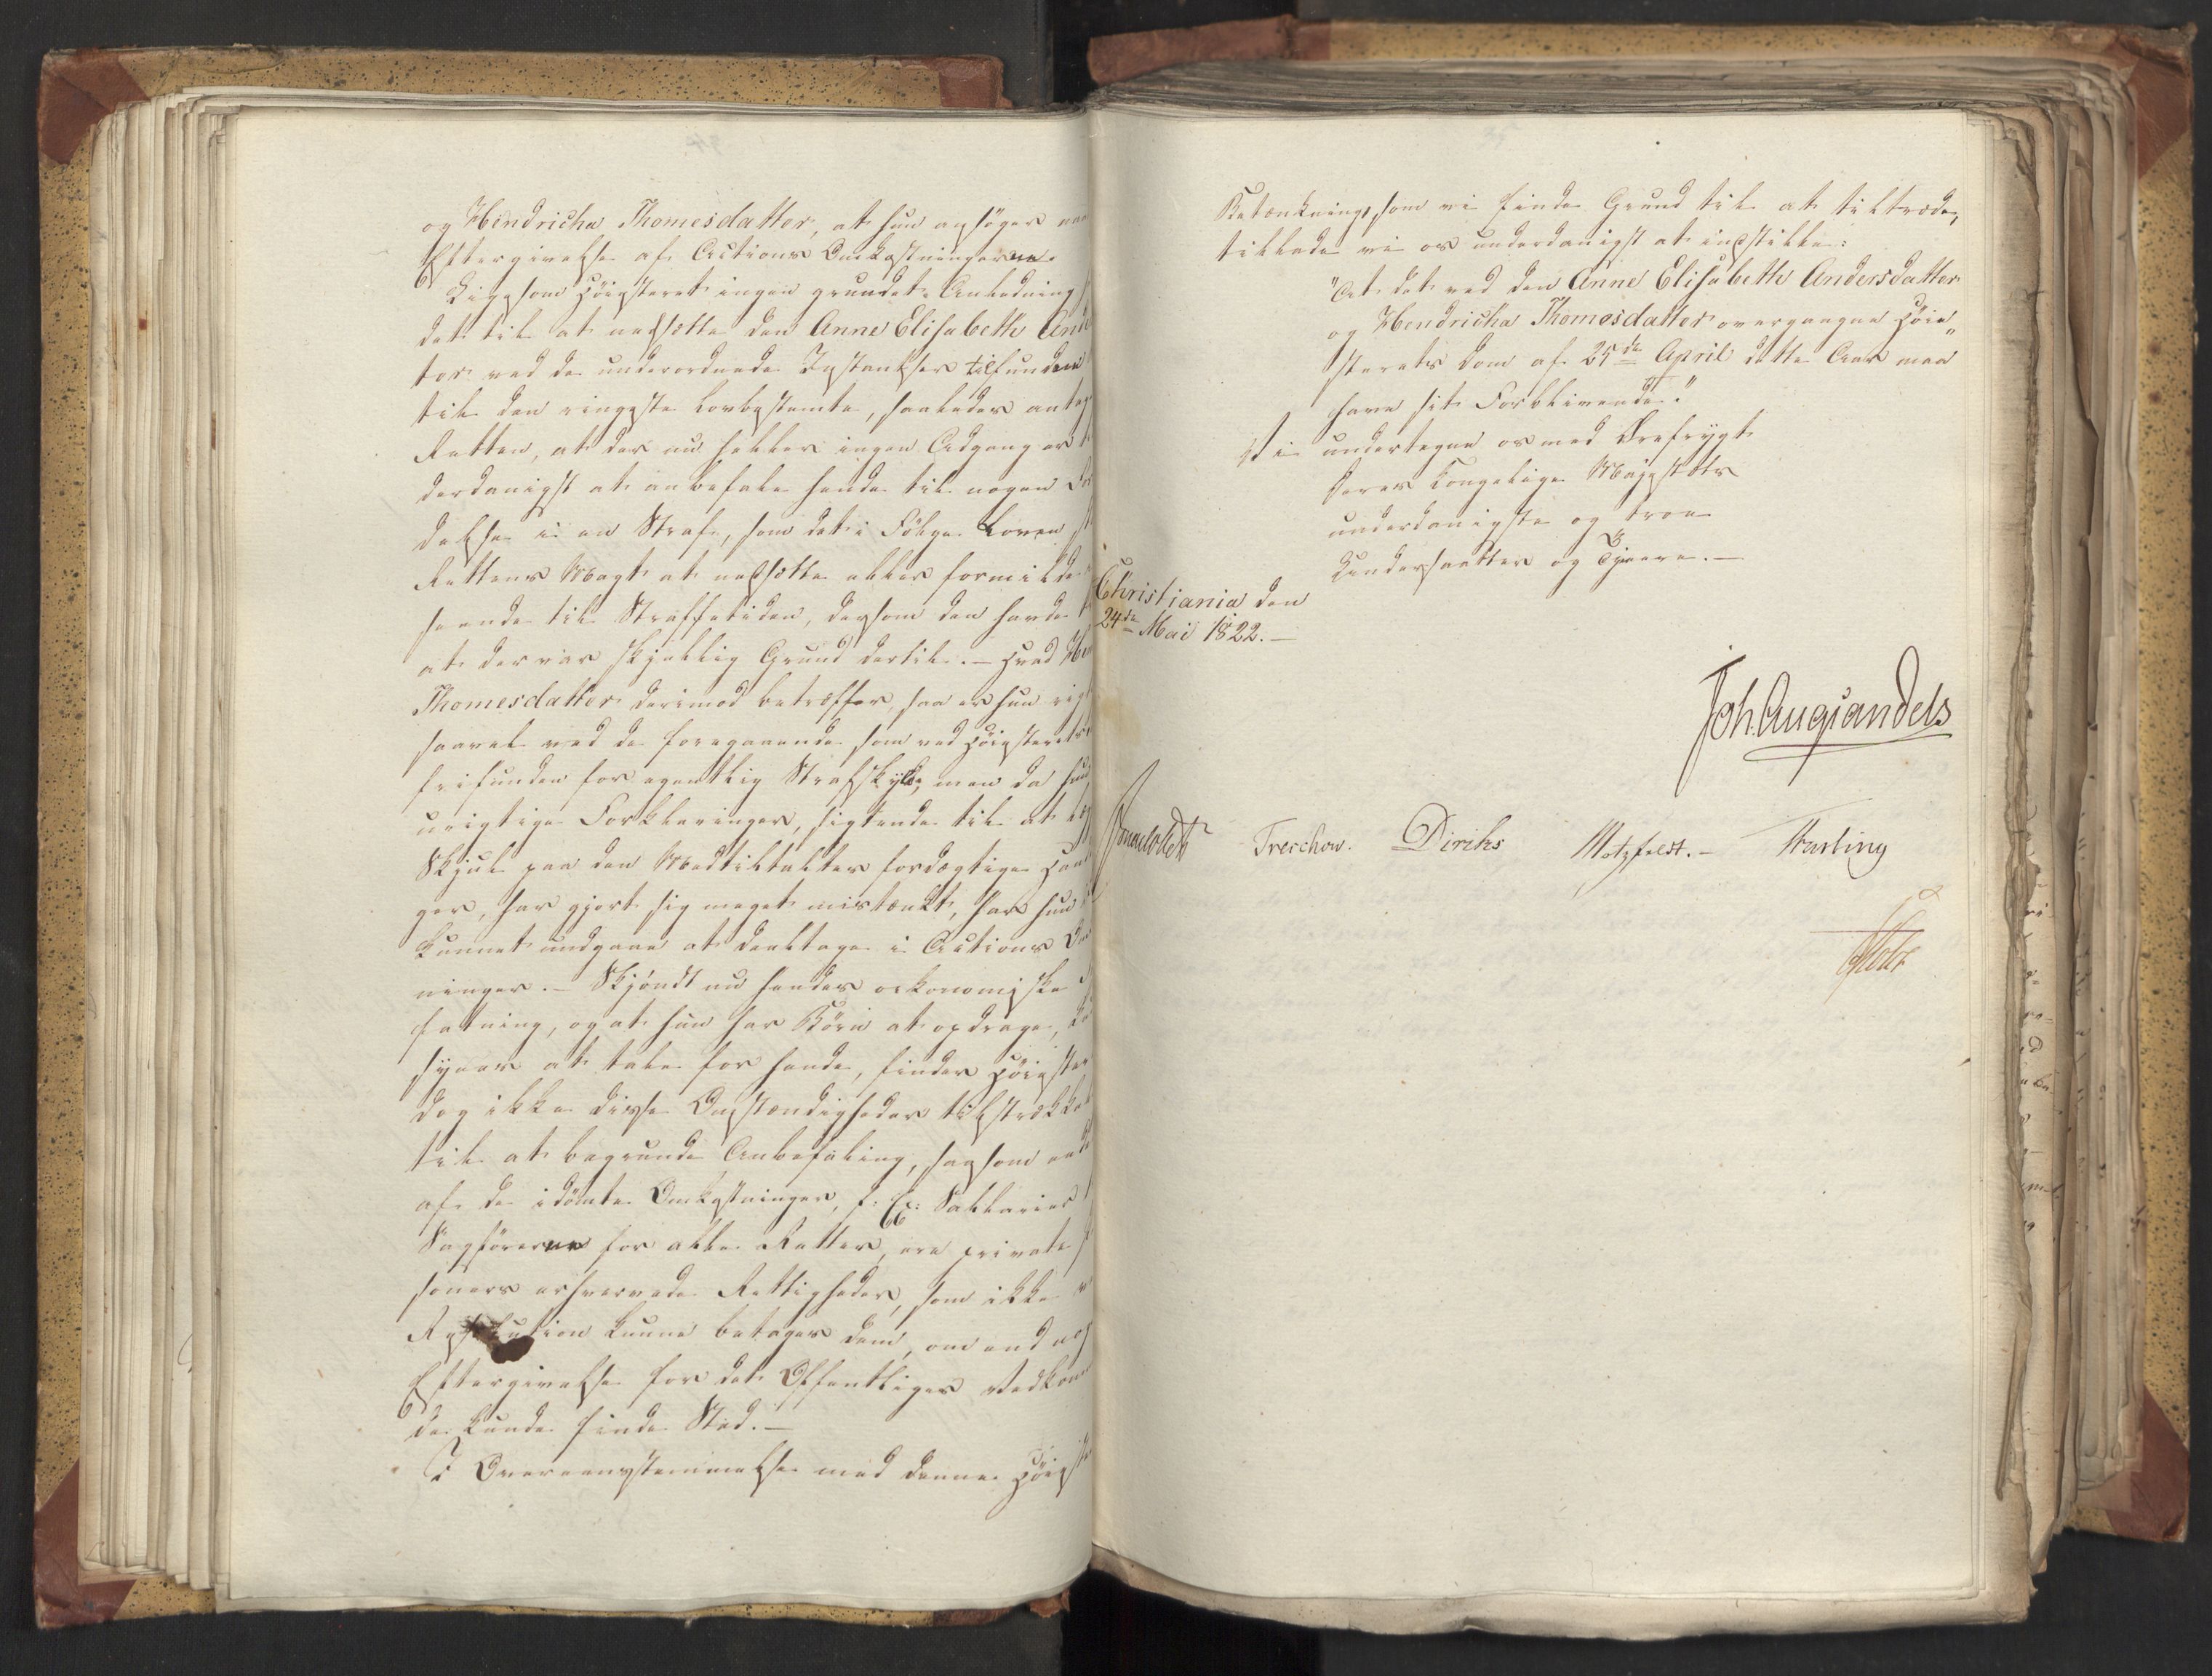 og Hendricha Thomesdatter, at hun ansöger om
Eftergivelse af Actions Omkostningerne.
Ligesom Höiesteret ingen grundet Anledning
det til at nedsætte den Anne Elisabeth And
ter ved de underordnede Instantser tilfundne
til den ringeste lovbestemte, saaledes antag
Retten, at der nu heller ingen Adgang er
derdanigst at anbefale hende til nogen For
delse i en Straf, som det i Fölge Loven
Rettens Magt at nedsætte eller formilde
seende til Straffetiden, dersom den havde
at der var skjellig Grund dertil. – Hvad Hen
Thomesdatter derimod betræffer, saa er hun vist
saavel ved de foregaaende som ved Höiesterets
frifunden for egentlig Strafskyld, men da hun
urigtige Forklaringer, sigtende til at læg
Skjul paa den Medtiltaltes fordægtige Han
ger, har gjort sig meget mistænkt, har hun
kunnet undgaae at deeltage i Actions Om
ninger. – Skjöndt nu hendes oekonomiske
fatning, og at hun har Börn at opdrage,
synes at tale for hende, finder Höiester
dog ikke disse Omstændigheder tilstrækkel
til at begrunde Anbefaling, saasom en
af de idömte Omkostninger, f: Ex: Sallarier
Sagförerne for alle Retter, ere private
soners erhvervede Rettigheder, som ikke
Resolution kunne betages dem, om end nog
Eftergivelse for det Offentliges Vedkom
de kunde finde Sted. –
I Overeensstemmelse med denne Höieste
Betænkning, som vi finde Grund til at tiltræde,
tillade vi os underdanigst at indstille:
"At det ved den Anne Elisabeth Andersdatter
og Hendricha Thomesdatter overgangne Höie„
sterets Dom af 25de April dette Aar maa
have sit Forblivende."
Vi undertegne os med Ærefrygt
Deres Kongelige Majestæts
underdanigste og troe
Undersaatter og Tjenere. –
Christiania den
24de Mai 1822. –
Joh. Aug Sandels
Sommerhielm Treschow. Diriks Motzfeldt. – Fasting
Holst